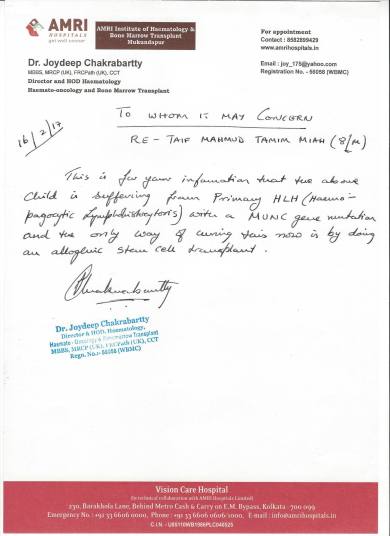 AMRI
HOSPITALS
get well sooner
AMRI Institute of Haematology &
Bone Marrow Transplant
Mukundapur
For appointment
Contact : 8582899429
www.amrihospitals.in
Dr. Joydeep Chakrabartty
MBBS, MRCP (UK), FRCPath (UK), CCT
Director and HOD Haematology
Haemato-oncology and Bone Marrow Transplant
Email : joy_175@yahoo.com
Registration No. - 56058 (WBMC)
16/2/17
TO WHOM IT MAY CONCERN
RE - TAIF MAHMUD TAMIM MIAH (8/M)
This is for your information that the above
Child is suffering from Primary HLH (Haemo-
pagocytic Lymphohistocytosis) with a MUNC gene mutation
and the only way of curing this now is by doing
an allogenic stem cell transplant.
Dr. Joydeep Chakrabartty
Director & HOD, Haematology,
Haemato - Oncology & Bonemarrow Transplant
MBBS, MRCP (UK), FRCPath (UK), CCT
Regn. No.:- 56058 (WBMC)
Vision Care Hospital
(In technical collaboration with AMRI Hospitals Limited)
230, Barakhola Lane, Behind Metro Cash & Carry on E.M. Bypass, Kolkata - 700 099
Emergency No. : +91 33 6606 0000, Phone : +91 33 6606 0606/1000, E-mail : info@amrihospitals.in
C.I.N. - U85110WB1986PLC040525